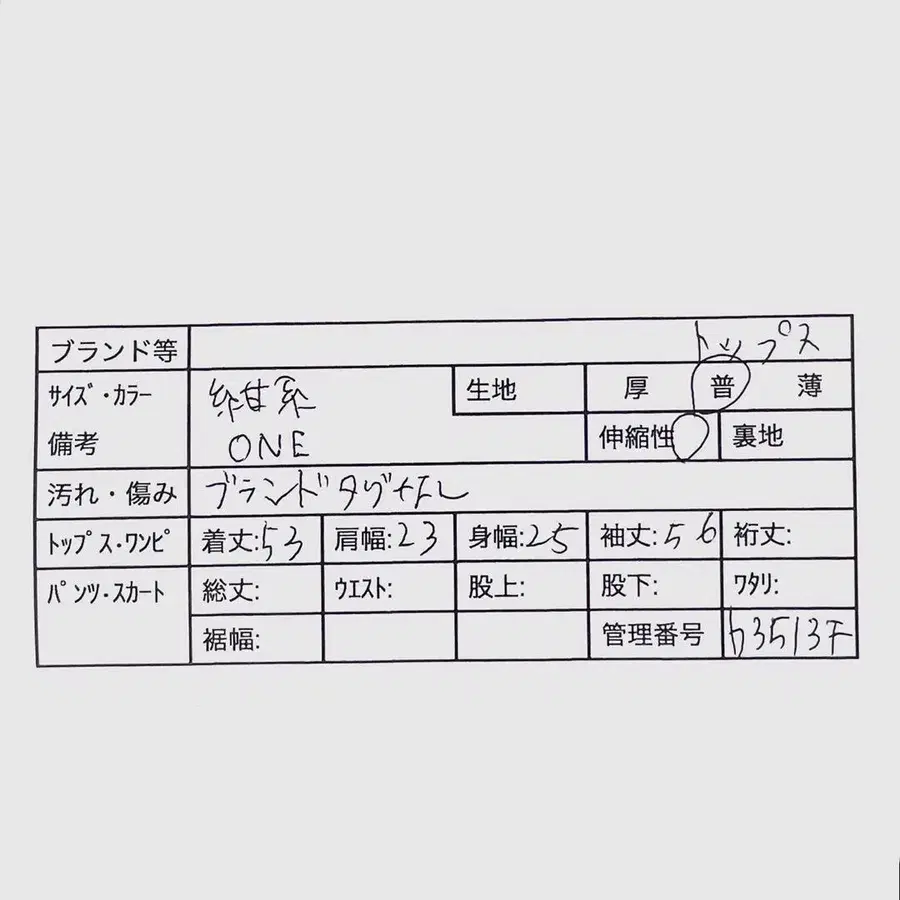 ブランド等 トップス
サイズ・カラー 紺系 生地 厚 普 薄
備考 ONE 伸縮性 裏地
汚れ・傷み ブランドタグなし
トップス・ワンピ 着丈:53 肩幅:23 身幅:25 袖丈:56 裄丈:
パンツ・スカート 総丈: ウエスト: 股上: 股下: ワタリ:
裾幅: 管理番号 h3513F